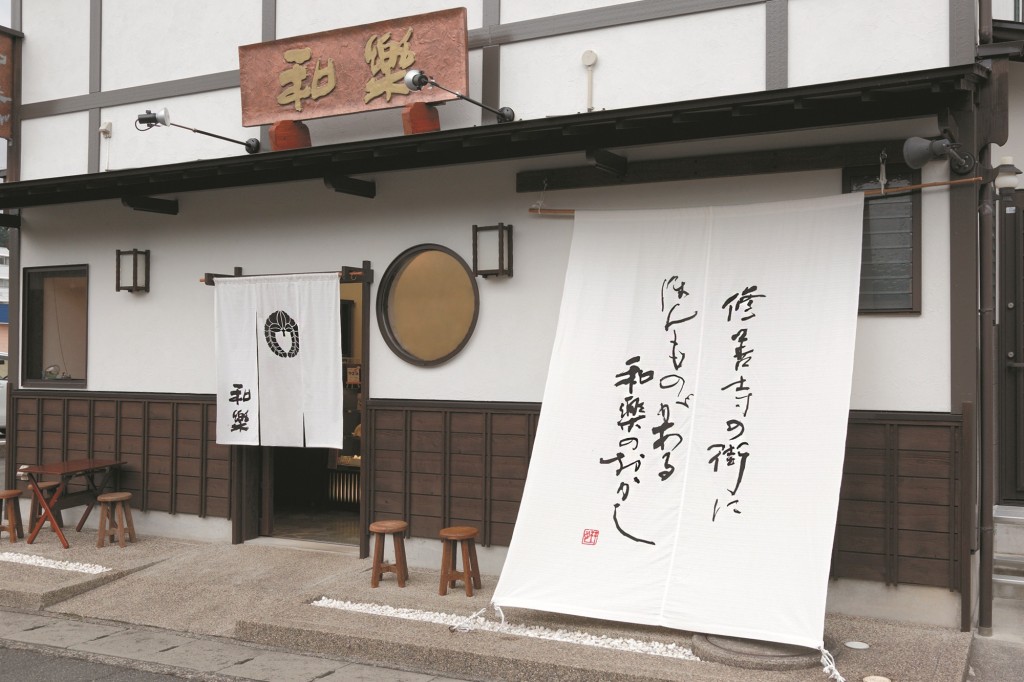 和樂
和樂
修善寺の街に
ほんものがある
和樂のおかし